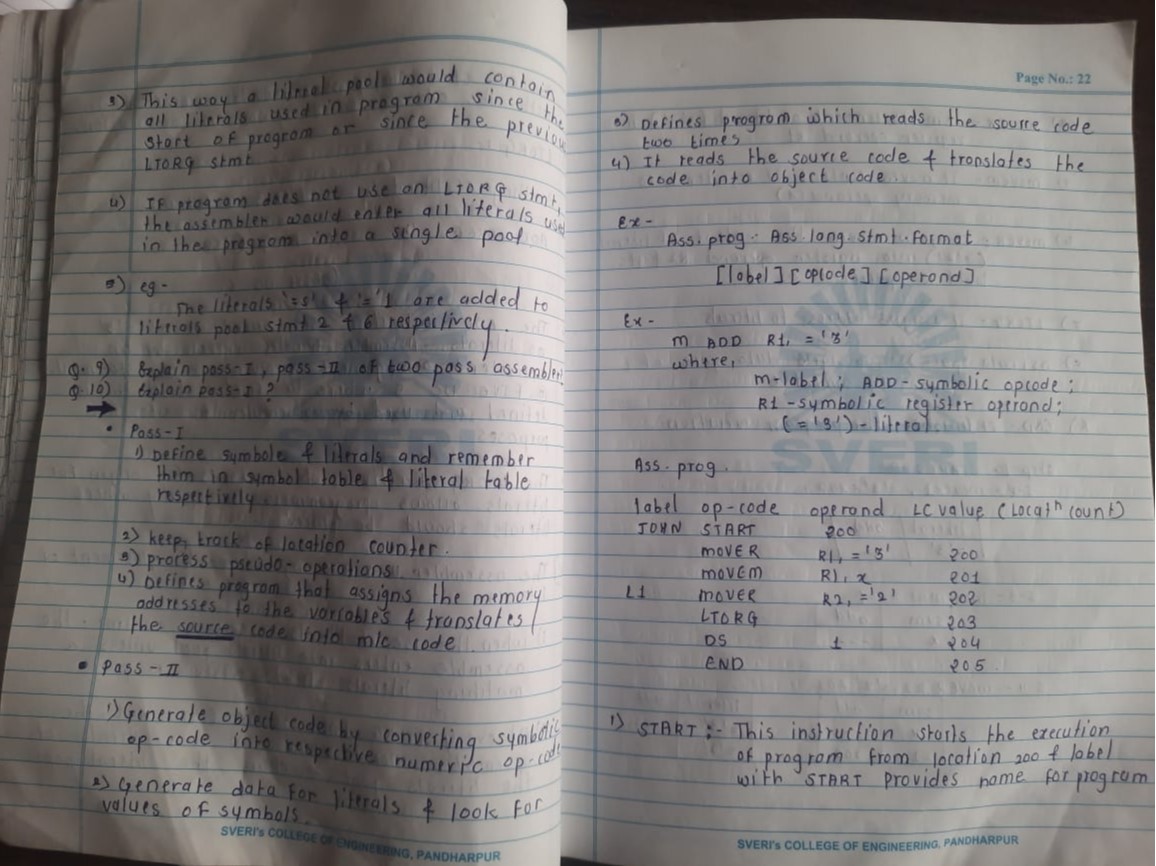 3) This way a literal pool would contain
all literals used in program since the
start of program or since the previou
LTORG stmt
4) IF program does not use an LTORG stmt,
the assembler would enter all literals used
in the program into a single pool
5) eg -
The literals '=5' & '='1 are added to
literals pool stmt 2 & 6 respectively.
Q. 9) Explain pass-I, pass-II of two pass assembler
Q. 10) Explain pass-I ?
• Pass-I
1) Define symbols & literals and remember
them in symbol table & literal table
respectively
2) keep track of location counter.
3) process pseudo-operations
4) Defines program that assigns the memory
addresses to the variables & translates
the source code into m/c code.
• Pass-II
1) Generate object code by converting symbolic
op-code into respective numeric op-code
2) Generate data for literals & look for
values of symbols.
SVERI's COLLEGE OF ENGINEERING, PANDHARPUR
Page No.: 22
3) Defines program which reads the source code
two times
4) It reads the source code & translates the
code into object code
Ex -
Ass. prog. Ass. lang. stmt. format
[label] [opcode] [operand]
Ex -
m ADD R1, = '3'
where,
m-label ; ADD - symbolic opcode ;
R1 - symbolic register operand;
( = '3' ) - literal.
SVERI
Ass. prog.
label op-code operand LC value (Locatn count)
JOHN START 200
MOVER R1, = '3' 200
MOVEM R1, x 201
L1 MOVER R2, = '2' 202
LTORG 203
DS 1 204
END 205
1) START :- This instruction starts the execution
of program from location 200 & label
with START provides name for program
SVERI's COLLEGE OF ENGINEERING, PANDHARPUR